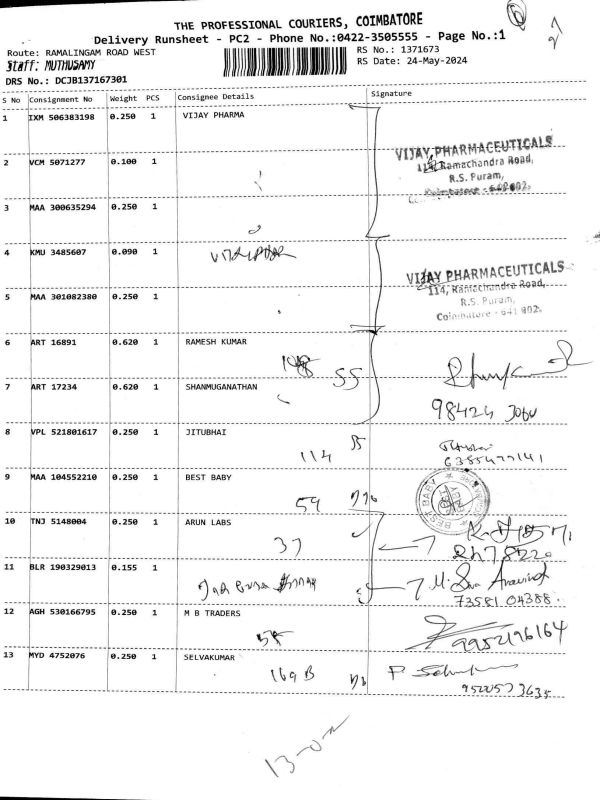 THE PROFESSIONAL COURIERS, COIMBATORE
Delivery Runsheet - PC2 - Phone No.:0422-3505555 - Page No.:1
Route: RAMALINGAM ROAD WEST
RS No.: 1371673
Staff: MUTHUSAMY
RS Date: 24-May-2024
DRS No.: DCJB137167301
S No Consignment No Weight PCS Consignee Details Signature
1 IXM 506383198 0.250 1 VIJAY PHARMA
VIJAY PHARMACEUTICALS
114, Ramachandra Road,
R.S. Puram,
2 VCM 5071277 0.100 1
3 MAA 300635294 0.250 1
4 KMU 3485607 0.090 1
VIJAY PHARMACEUTICALS
114, Ramachandra Road,
R.S. Puram,
Coimbatore - 641 002.
5 MAA 301082380 0.250 1
6 ART 16891 0.620 1 RAMESH KUMAR
55
7 ART 17234 0.620 1 SHANMUGANATHAN
98424
8 VPL 521801617 0.250 1 JITUBHAI
114
9 MAA 104552210 0.250 1 BEST BABY
59
BEST BABY
10 TNJ 5148004 0.250 1 ARUN LABS
37
11 BLR 190329013 0.155 1
73581 04388
12 AGH 530166795 0.250 1 M B TRADERS
9952196164
13 MYD 4752076 0.250 1 SELVAKUMAR
169 B